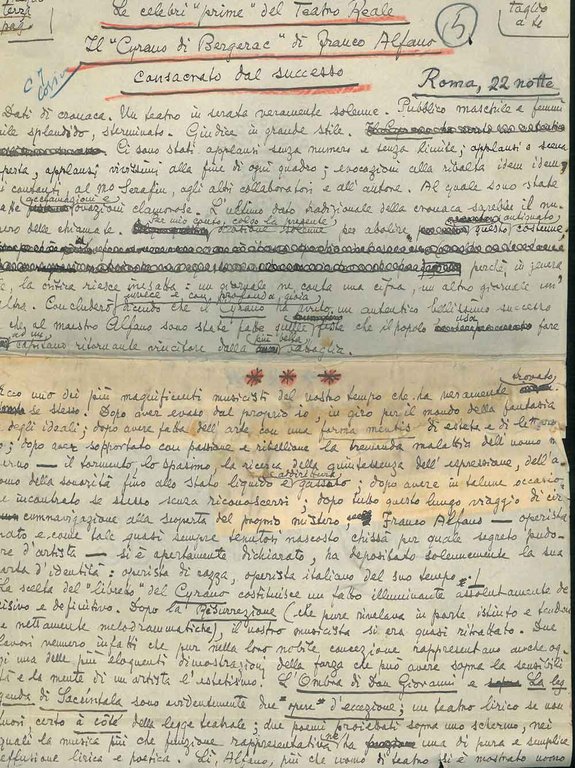 terza
pag.
Le celebri "prime" del Teatro Reale
5
taglio
a te
Il "Cyrano di Bergerac" di Franco Alfano
consacrato dal successo
c. 7
corsivo
Roma, 22 notte
Dati di cronaca. Un teatro in serata veramente solenne. Pubblico maschile e femmi
nile splendido, sterminato. Giudice in grande stile.
Ci sono stati applausi senza numero e senza limite; applausi a scena
aperta, applausi vivissimi alla fine di ogni quadro; evocazioni alla ribalta idem idem,
ai cantanti, al Mo Serafin, agli altri collaboratori e all'autore. Al quale sono state
fatte acclamazioni e ovazioni clamorose. L'ultimo dato tradizionale della cronaca sarebbe il nu
mero delle chiamate. solenne per abolire, questo antiquato costume,
perché, in genere
la critica riesce inesatta: un giornale ne conta una cifra, un altro giornale un'
altra. Concluderò invece e con profonda gioia dicendo che il Cyrano ha avuto un autentico bellissimo successo
e che al maestro Alfano sono state fatte feste che il popolo usa fare
ad un capitano ritornante vincitore dalla più bella battaglia.
* * *
Ecco uno dei più magnificenti musicisti del nostro tempo che ha veramente trovato
se stesso. Dopo aver evaso dal proprio io, in giro per il mondo della fantasia
e degli ideali; dopo avere fatto dell'arte con una forma mentis di esteta e di lettera
to; dopo aver sopportato con passione e ribellione la tremenda malattia dell'uomo mo
derno — il tormento, lo spasimo, la ricerca della quintessenza dell'espressione, dell'a
tomo della sonorità fino allo stato liquido e addirittura gassoso; dopo avere in talune occasio
ni incontrato se stesso senza riconoscersi; dopo tutto questo lungo viaggio di cir
cumnavigazione alla scoperta del proprio mistero, Franco Alfano — operista
nato e come tale quasi sempre tenutosi nascosto chissà per quale segreto pudo
re d'artista — si è apertamente dichiarato, ha depositato solennemente la sua
carta d'identità: operista di razza, operista italiano del suo tempo!
La scelta del "libretto" del Cyrano costituisce un fatto illuminante assolutamente de
cisivo e definitivo. Dopo la Risurrezione (che pure rivelava in parte istinto e tenden
ze nettamente melodrammatiche), il nostro musicista si era quasi ritrattato. Due
lavori vennero infatti che pur nella loro nobile concezione rappresentano anche og
gi una delle più eloquenti dimostrazioni della forza che può avere sopra la sensibili
tà e la mente di un artista l'estetismo. L'Ombra di Don Giovanni e La leg
genda di Sacùntala sono evidentemente due "opere" d'eccezione; un teatro lirico se non
fuori, certo à côté delle legge teatrale; due poemi proiettati sopra uno schermo, nei
quali la musica più che funzione rappresentativa ne ha una di pura e semplice
effusione lirica e poetica. Lì, Alfano, più che uomo di teatro si è mostrato uomo